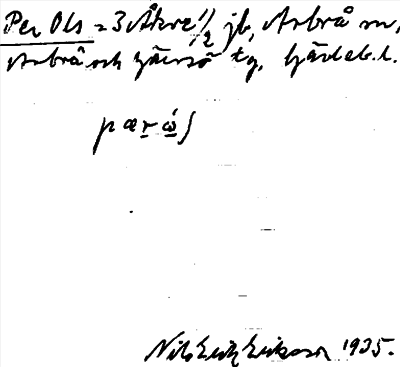 Per Ols = 3 Åkre 1/2 jb, Arbrå sn,
Arbrå och Järvsö tg, Gävleb. l.
pærω̇ʃ
Nils Erik Eriksson 1935.